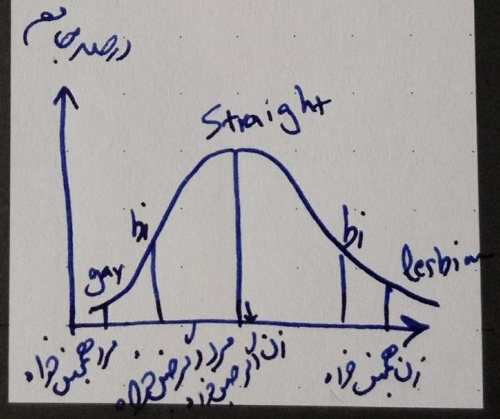 درصد جامعه
Straight
bi
bi
gay
lesbian
مرد همجنس‌خواه
مرد دگرجنس‌خواه
زن دگرجنس‌خواه
زن همجنس‌خواه